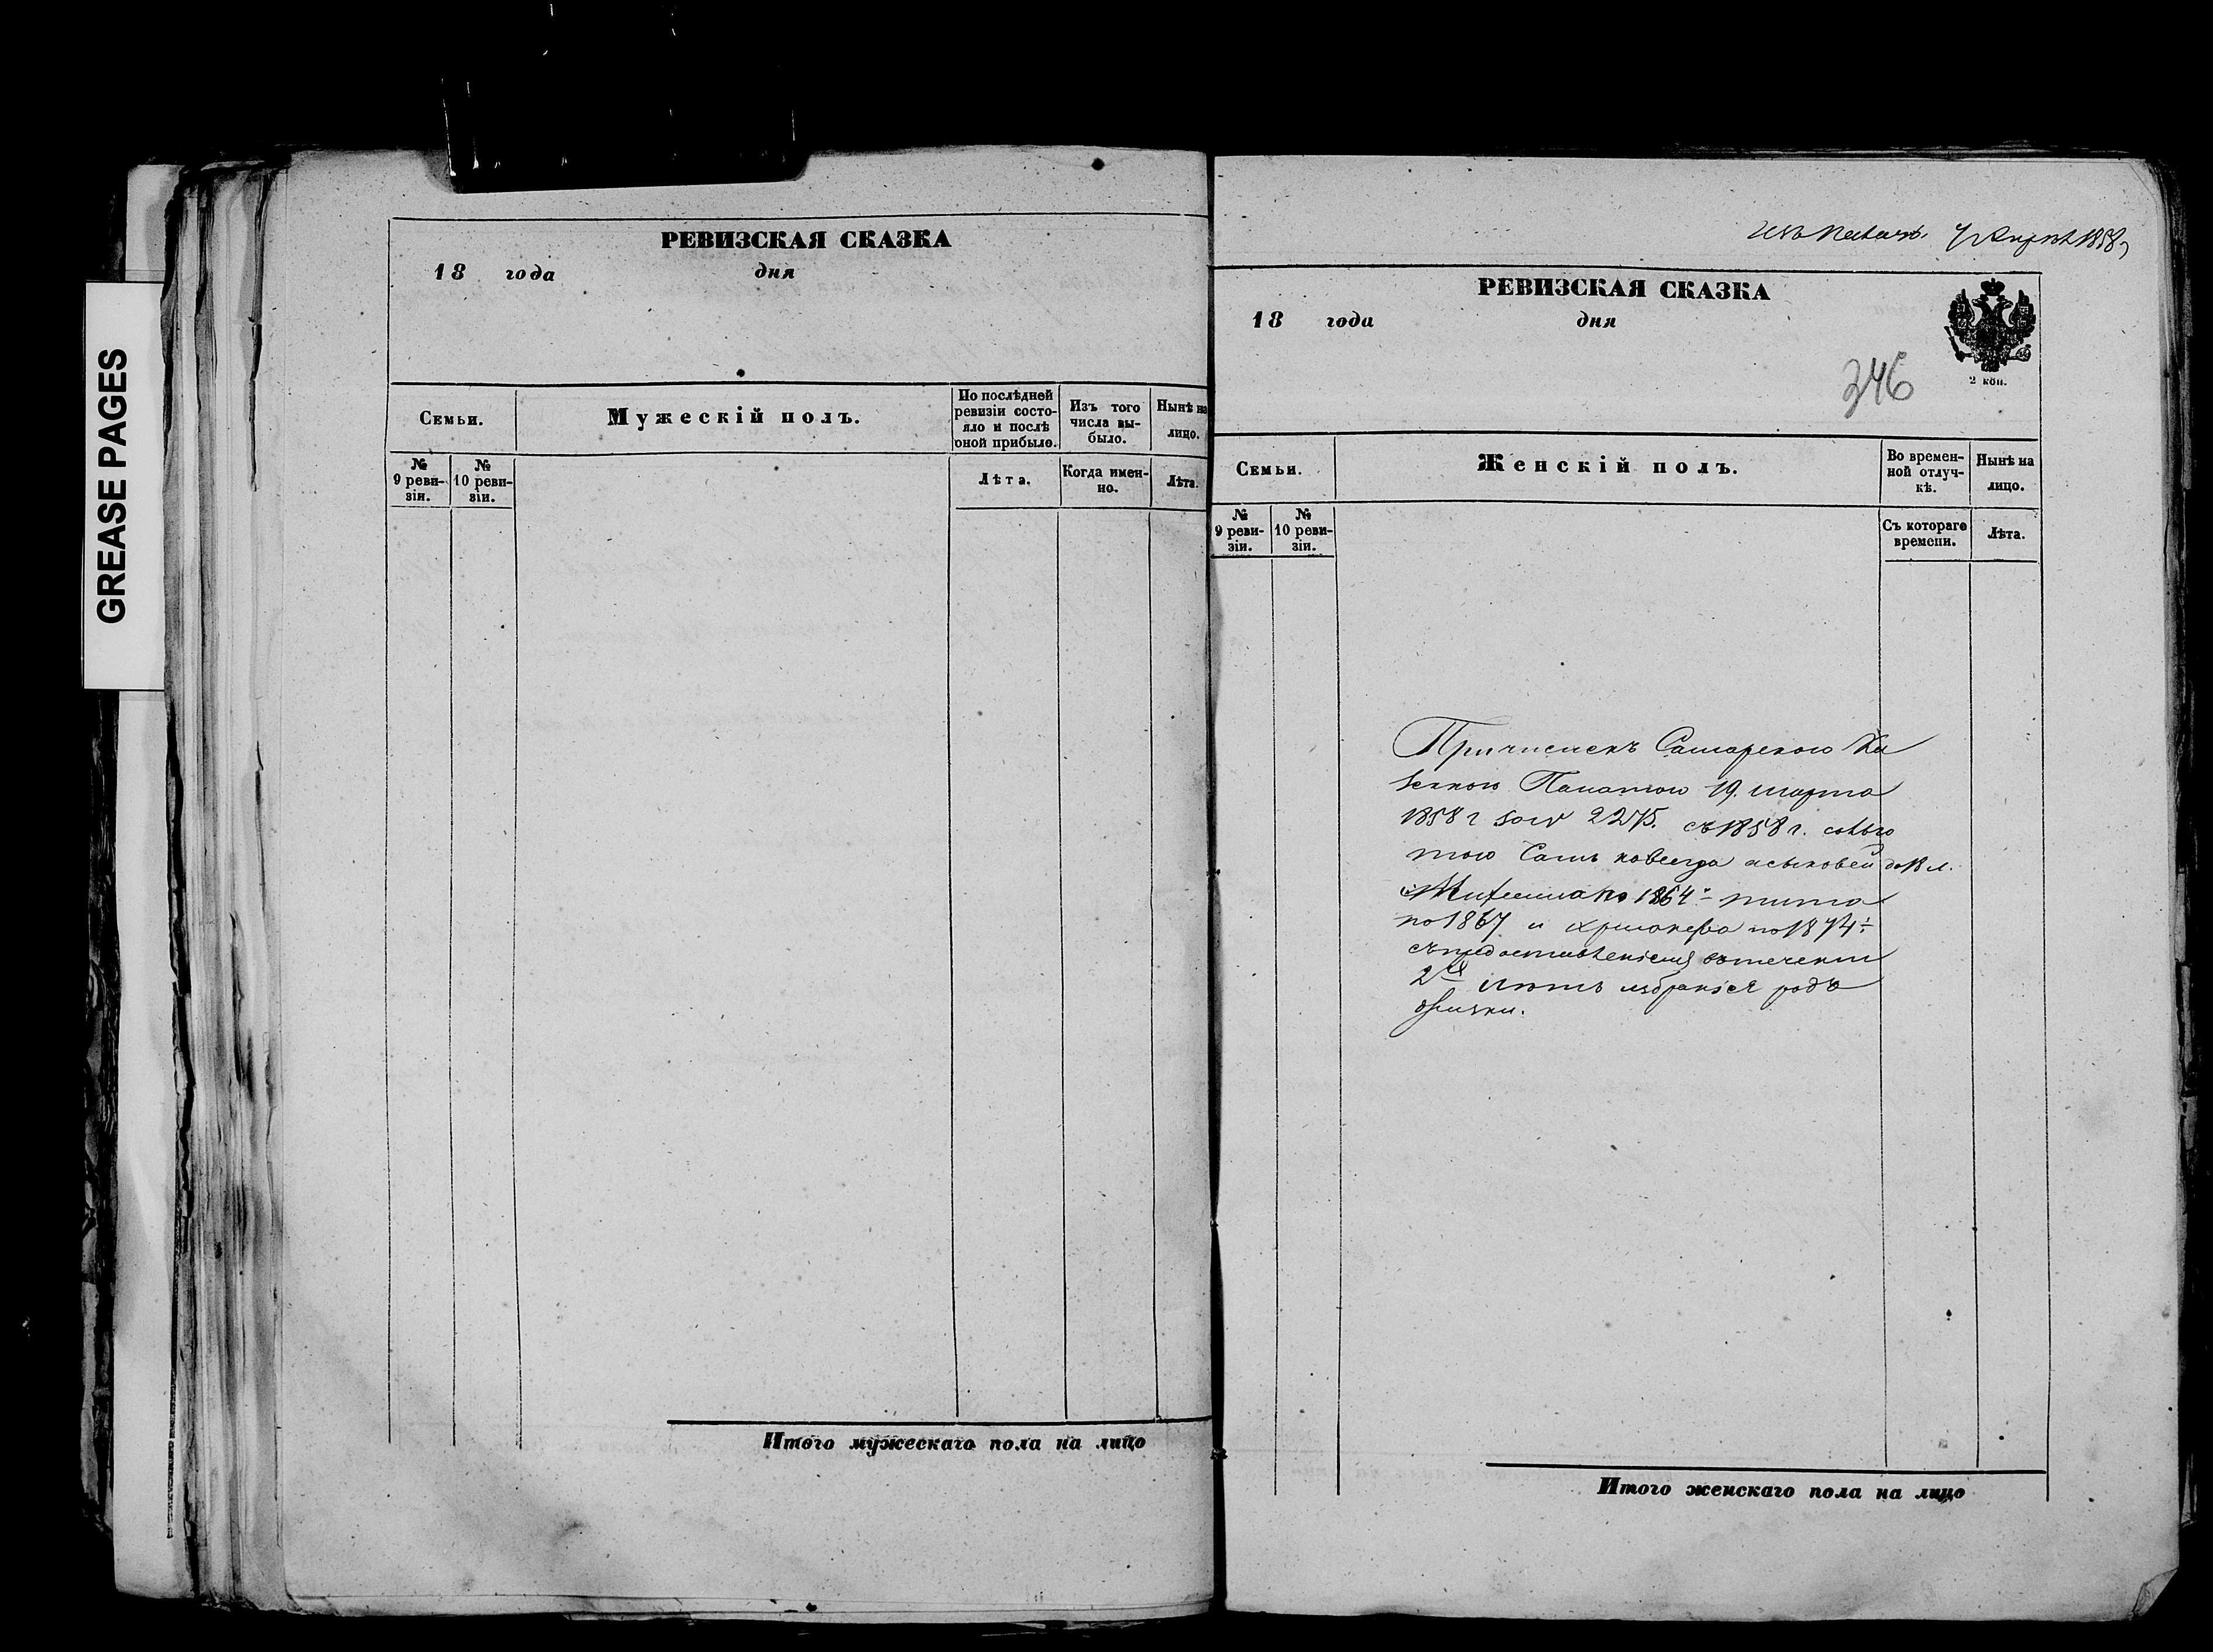 GREASE PAGES
РЕВИЗСКАЯ СКАЗКА
18 года дня
Семьи.
Мужескій полъ.
По послѣдней ревизіи состояло и послѣ оной прибыло.
Изъ того числа выбыло.
Нынѣ на лицо.
№ 9 ревизіи.
№ 10 ревизіи.
Лѣта.
Когда именно.
Лѣта.
Итого мужескаго пола на лицо
1858
РЕВИЗСКАЯ СКАЗКА
18 года дня
2 коп.
346
Семьи.
Женскій полъ.
Во временной отлучкѣ.
Нынѣ на лицо.
№ 9 ревизіи.
№ 10 ревизіи.
Съ котораго времени.
Лѣта.
Причисленъ Самарскою Ка
зенною Палатою 19 марта
1858 г 2275. съ 1858 г.
тою Самъ навсегда а сыновей до 18 л.
по 1864 Тита
по 1867 и по 1874
съ предоставленіемъ въ теченіи
2хъ лѣтъ избранія рода
жизни.
Итого женскаго пола на лицо